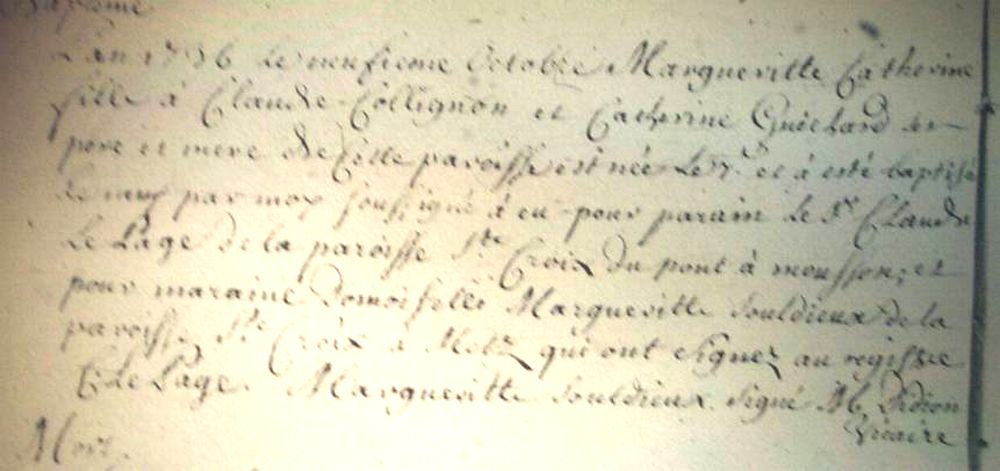 Baptême
L'an 1736 le neufieme Octobre Margueritte Catherine
fille à Claude Collignon et Catherine Guichard ses
pere et mere de cette paroisse est née le 7e et à esté baptisé
le neuf par moy soussigné à eu pour parain le Sr Claude
Le Page de la paroisse Ste Croix du pont à mousson; et
pour maraine Domoiselle Margueritte Souldieux de la
paroisse Ste Croix à Metz qui ont signez au registre
C Le Page. Margueritte Souldieux. Signé Didion
Vicaire
Mort.